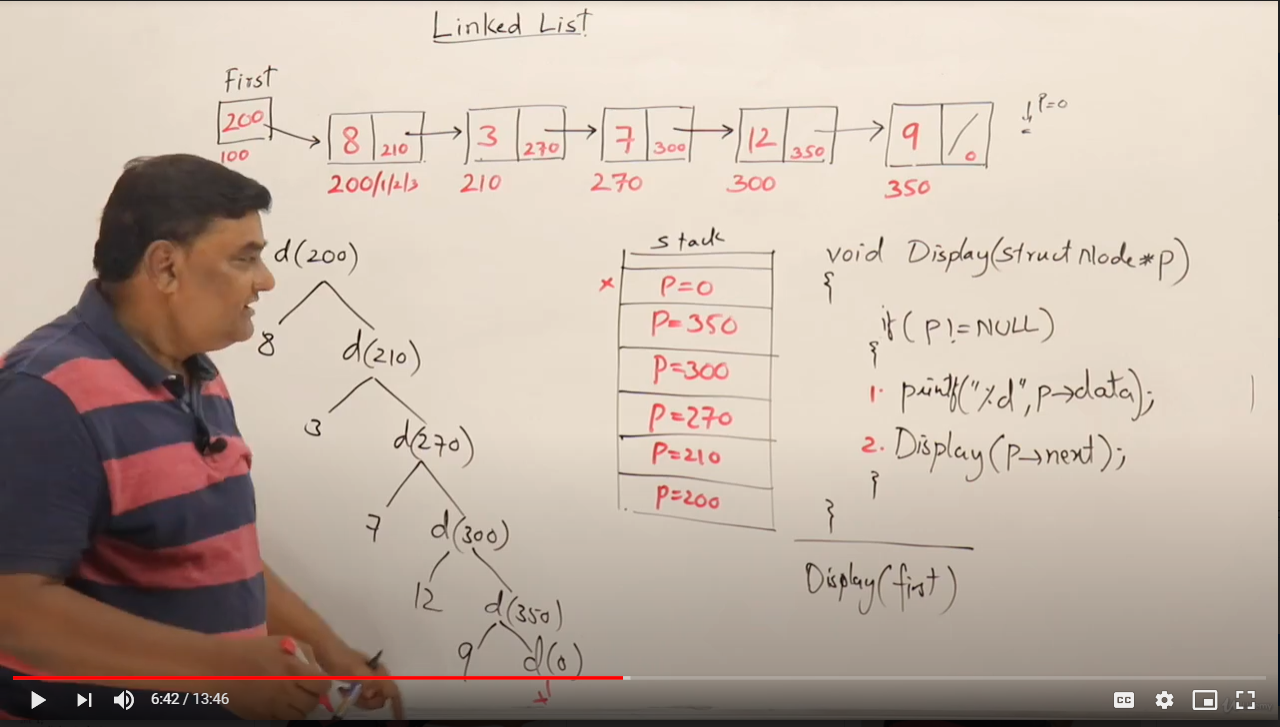 Linked List
First
200
100
8 210
200/1/2/3
3 270
210
7 300
270
12 350
300
9 0
350
P=0
d(200)
8 d(210)
3 d(270)
7 d(300)
12 d(350)
9 d(0)
x
stack
x P=0
P=350
P=300
P=270
P=210
P=200
void Display(struct Node*p)
{
if(p!=NULL)
{
1. printf("%d",p→data);
2. Display(p→next);
}
}
Display(first)
6:42 / 13:46
CC